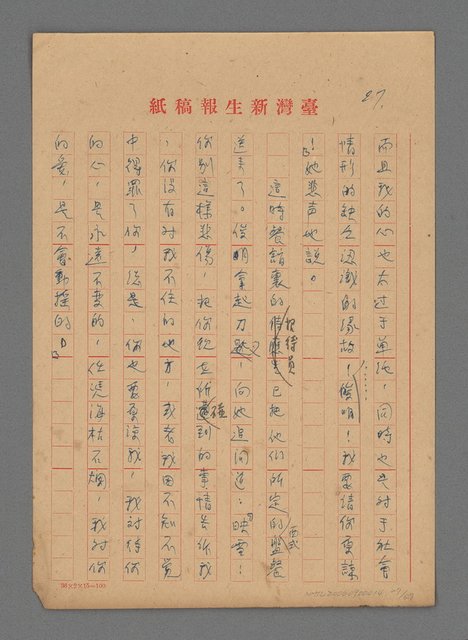 27.
臺灣新生報稿紙
而且我的心也太过于單純，同時也是对于社會
情形的缺乏認識的緣故！俊明！我要請你原諒
！」她悲声地説。
這時餐館裏的招待員已把他們所定的西式盤餐
送来了。俊明拿起刀叉，向她追问道：「映雪！
你别這樣悲傷，把你现在所遭到的事情告诉我
，你没有对我不住的地方，或者我因不知不覚
中得罪了你，總是，你也要原諒我，我对待你
的心，是永遠不変的，任凭海枯石爛，我对你
的愛，是不會動揺的。」